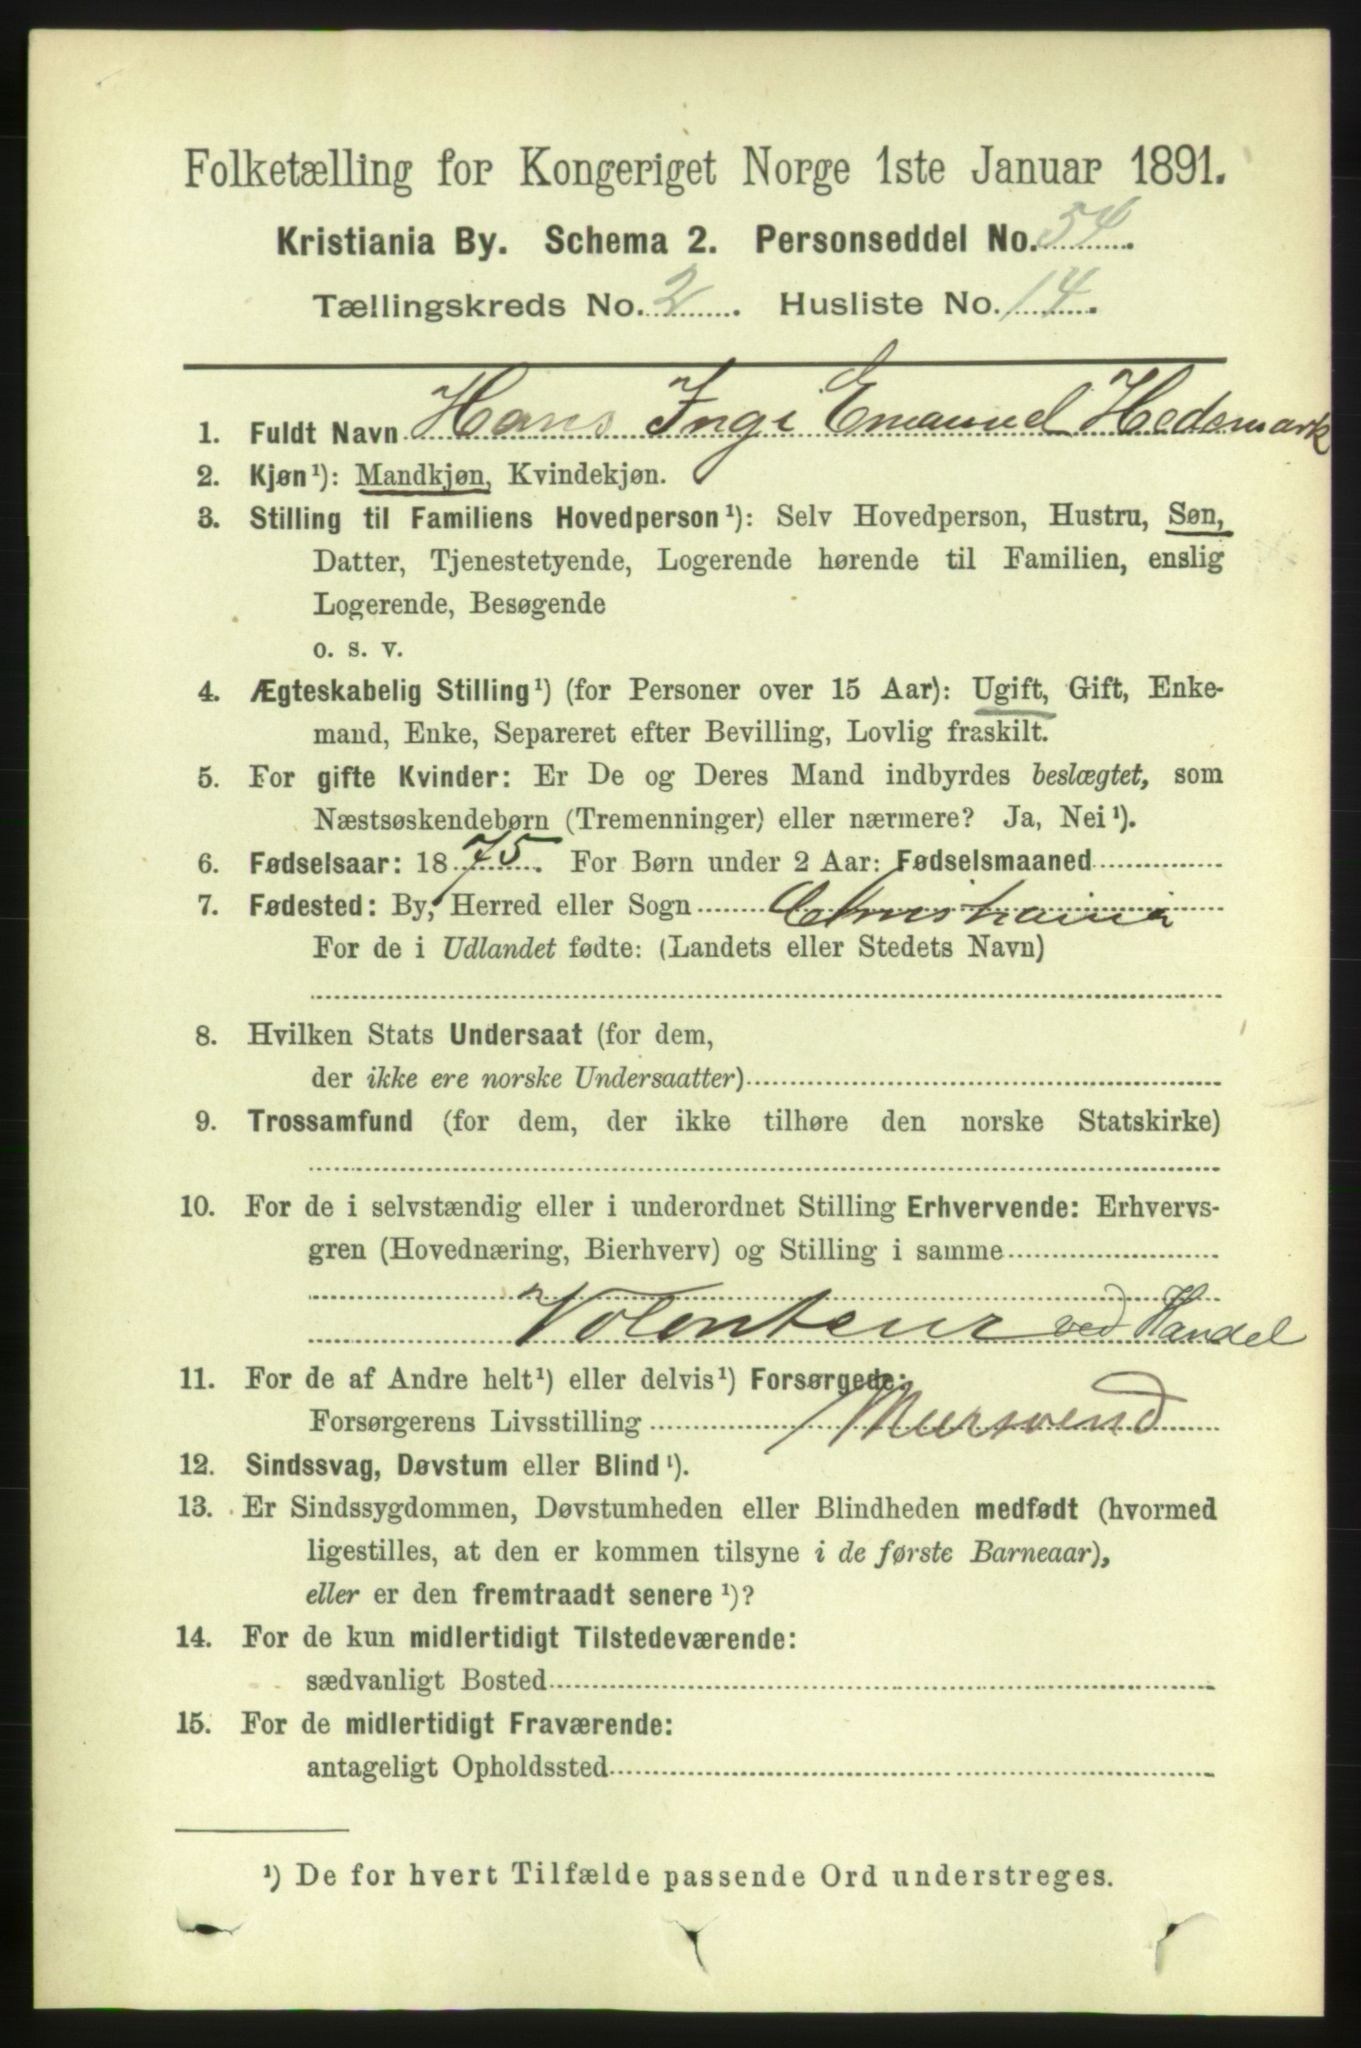 Folketælling for Kongeriget Norge 1ste Januar 1891.
Kristiania By. Schema 2. Personseddel No. 54.
Tællingskreds No. 2. Husliste No. 14.
1. Fuldt Navn Hans Inge Emanuel Hedemark
2. Kjøn¹): Mandkjøn, Kvindekjøn.
3. Stilling til Familiens Hovedperson¹): Selv Hovedperson, Hustru, Søn,
Datter, Tjenestetyende, Logerende hørende til Familien, enslig
Logerende, Besøgende
o. s. v.
4. Ægteskabelig Stilling¹) (for Personer over 15 Aar): Ugift, Gift, Enke-
mand, Enke, Separeret efter Bevilling, Lovlig fraskilt.
5. For gifte Kvinder: Er De og Deres Mand indbyrdes beslægtet, som
Næstsøskendebørn (Tremenninger) eller nærmere? Ja, Nei¹).
6. Fødselsaar: 1875. For Børn under 2 Aar: Fødselsmaaned
7. Fødested: By, Herred eller Sogn Christiania
For de i Udlandet fødte: (Landets eller Stedets Navn)
8. Hvilken Stats Undersaat (for dem,
der ikke ere norske Undersaatter)
9. Trossamfund (for dem, der ikke tilhøre den norske Statskirke)
10. For de i selvstændig eller i underordnet Stilling Erhvervende: Erhvervs-
gren (Hovednæring, Bierhverv) og Stilling i samme
Volonteur ved Handel
11. For de af Andre helt¹) eller delvis¹) Forsørgede:
Forsørgerens Livsstilling Mursvend
12. Sindssvag, Døvstum eller Blind¹).
13. Er Sindssygdommen, Døvstumheden eller Blindheden medfødt (hvormed
ligestilles, at den er kommen tilsyne i de første Barneaar),
eller er den fremtraadt senere¹)?
14. For de kun midlertidigt Tilstedeværende:
sædvanligt Bosted
15. For de midlertidigt Fraværende:
antageligt Opholdssted
¹) De for hvert Tilfælde passende Ord understreges.